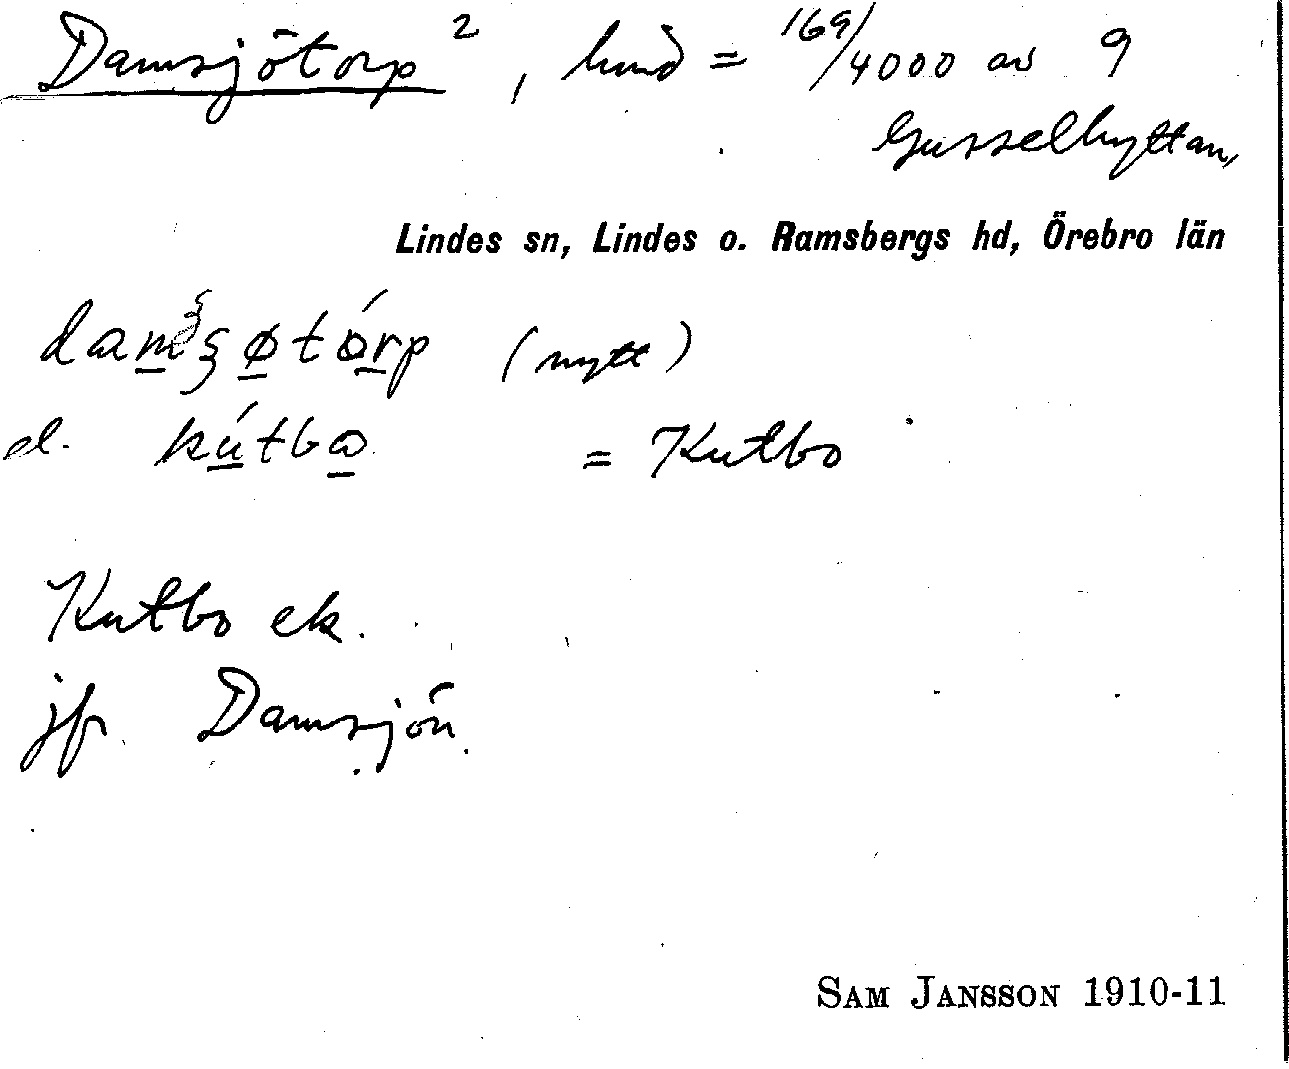 Damsjötorp 2, hmd = 169/4000 av 9
Gusselhyttan,
Lindes sn, Lindes o. Ramsbergs hd, Örebro län
(nytt)
el. kútbo = Kutbo
Kutbo ek.
jfr Damsjön.
SAM JANSSON 1910-11